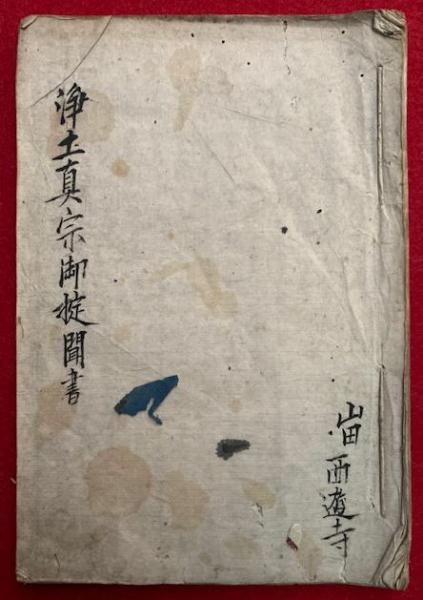 浄土真宗御掟聞書
山田 西遊寺